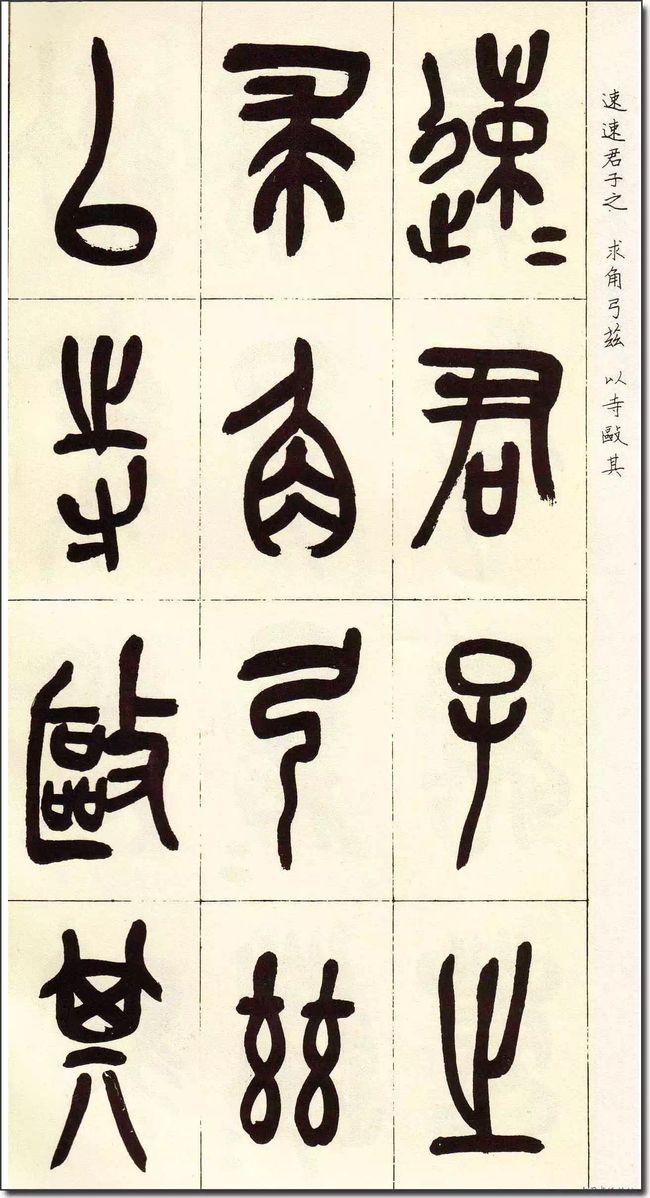 速速君子之　求角弓兹　以寺敺其
速=君子之
求角弓兹
以寺敺其